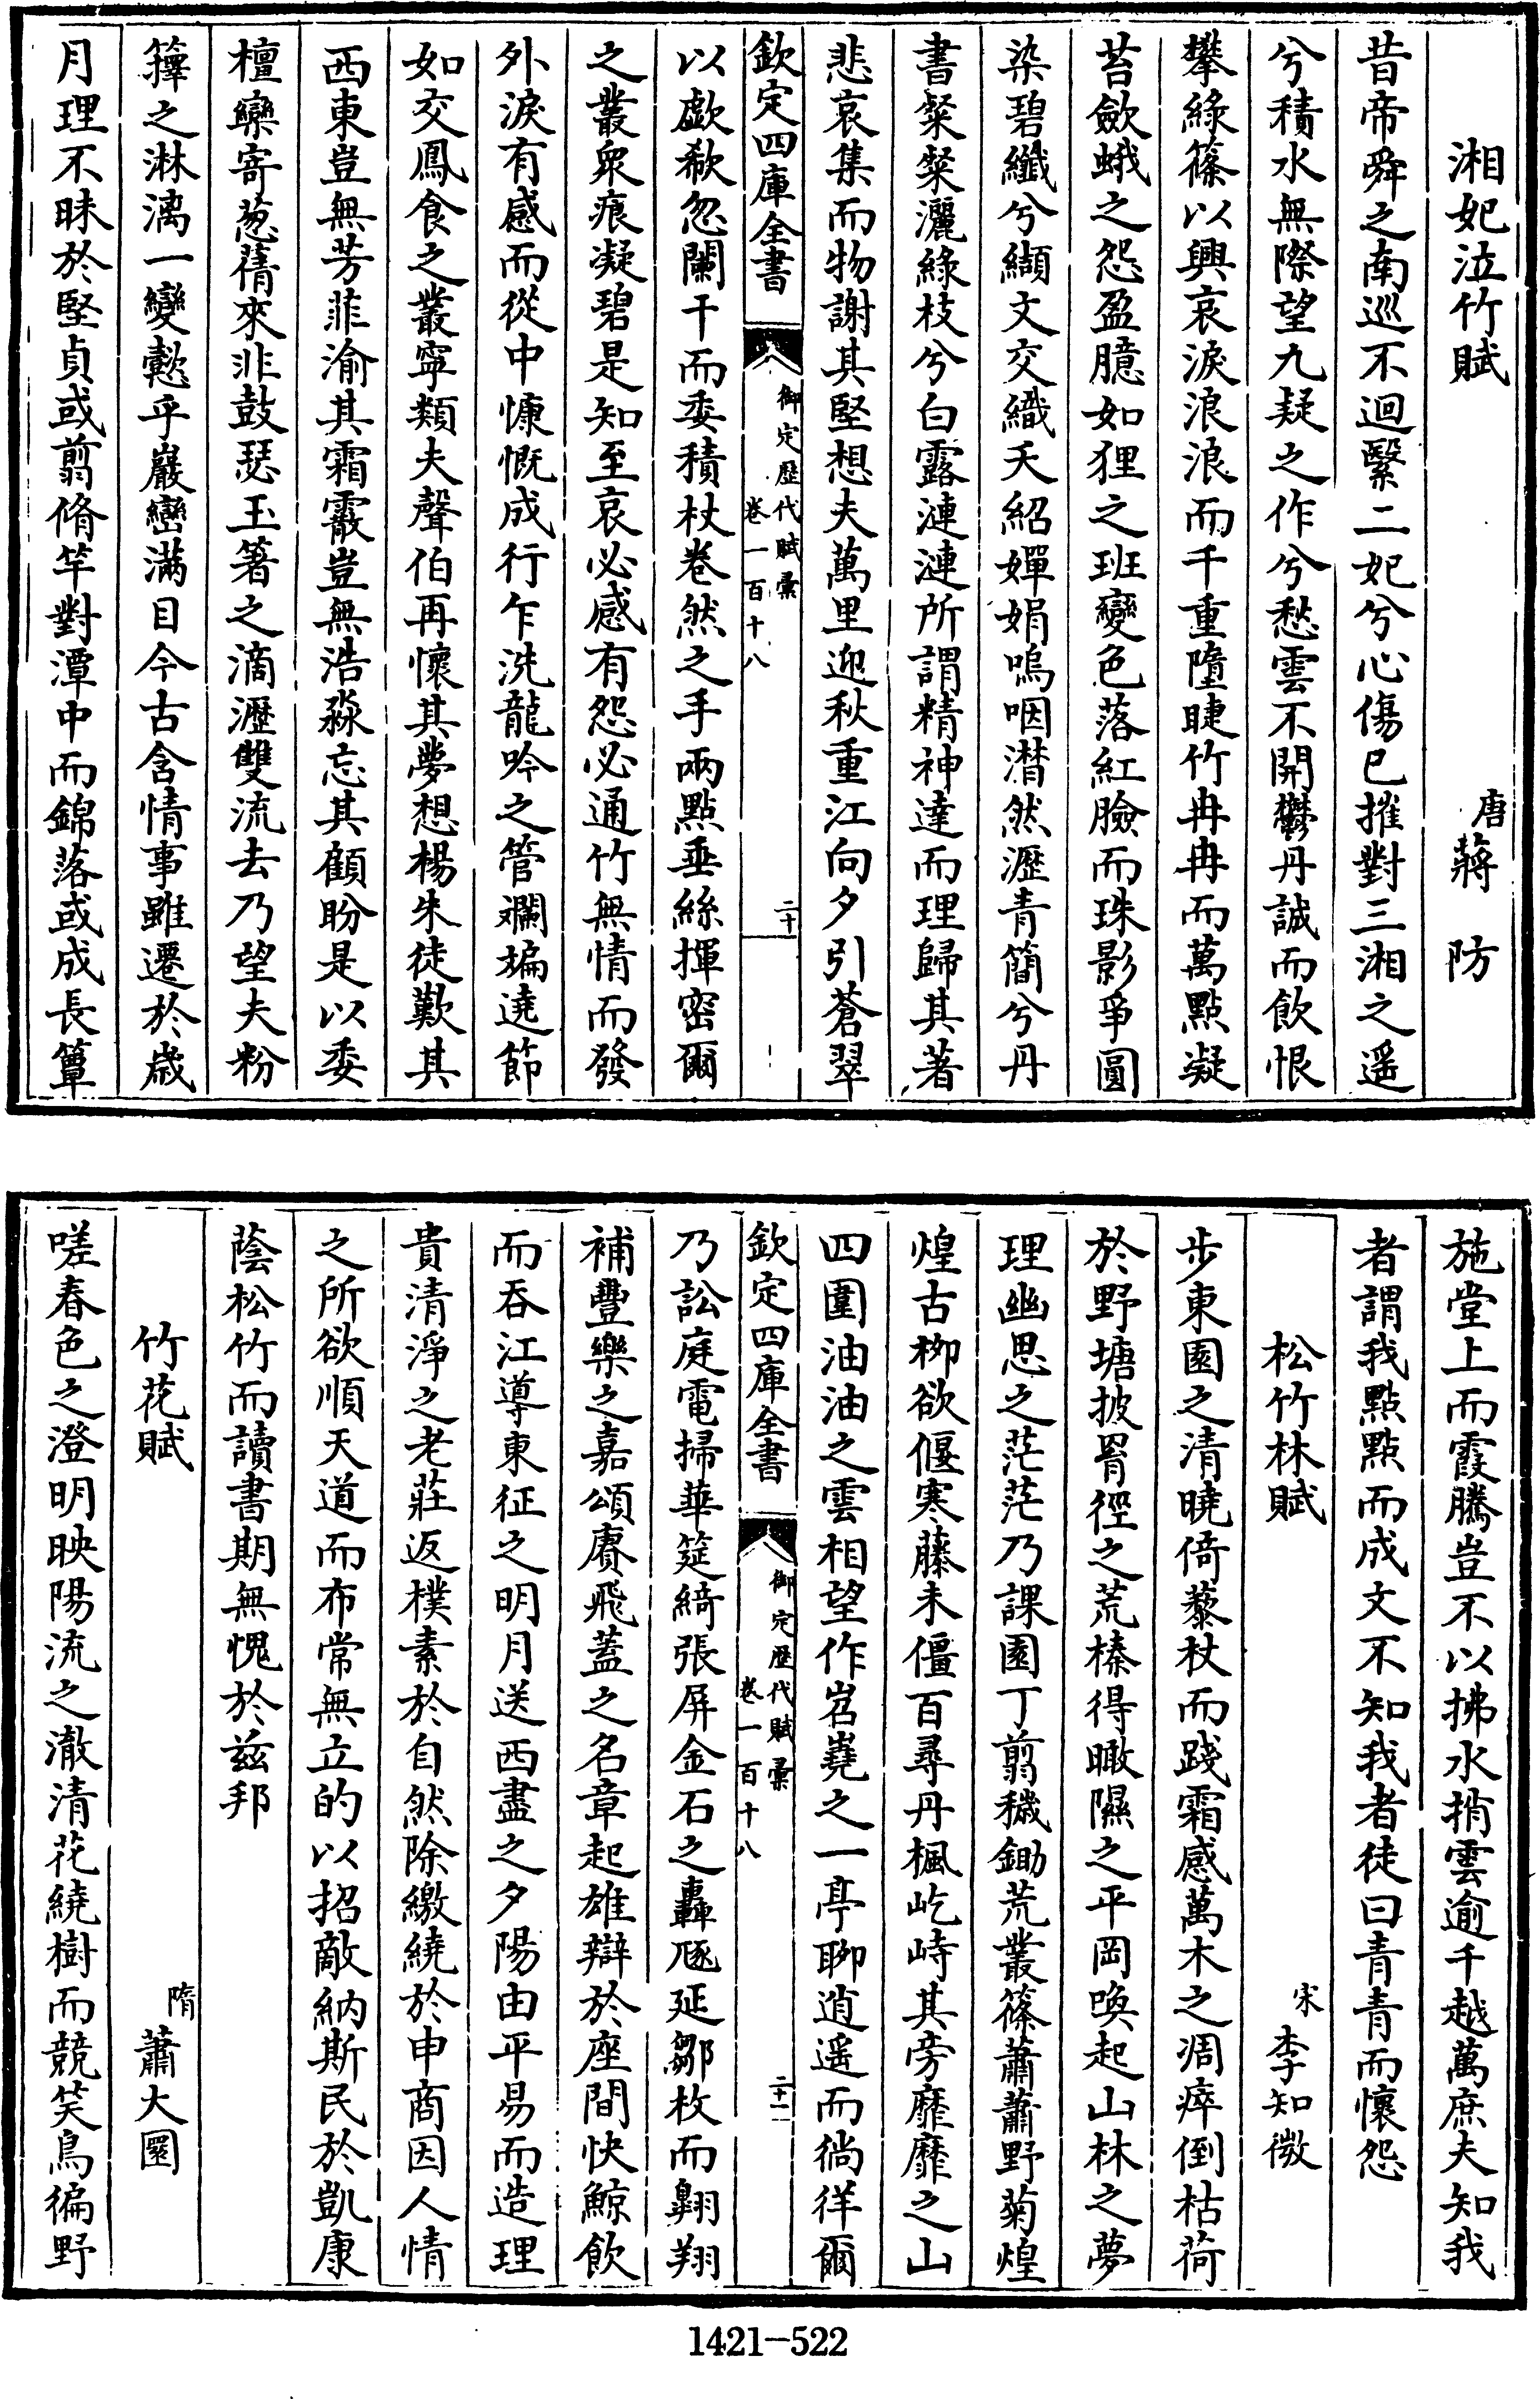 湘妃泣竹賦
唐蔣防
昔帝舜之南巡不迴繄二妃兮心傷已摧對三湘之遥
兮積水無際望九疑之作兮愁雲不開鬱丹誠而飲恨
攀綠篠以興哀淚浪浪而千重墮睫竹冉冉而萬點凝
苔歛蛾之怨盈臆如狸之班變色落紅臉而珠影爭圓
染碧纖兮纈文交織夭紹嬋娟嗚咽潸然瀝青簡兮丹
書粲粲灑綠枝兮白露漣漣所謂精神達而理歸其著
悲哀集而物謝其堅想夫萬里迎秋重江向夕引蒼翠
欽定四庫全書
御定歷代賦彙
卷一百十八
二十
以歔欷忽闌干而委積杖卷然之手兩點垂絲揮密爾
之叢衆痕凝碧是知至哀必感有怨必通竹無情而發
外淚有感而從中慷慨成行乍洗龍吟之管斕斒遶節
如交鳳食之叢寧類夫聲伯再懷其夢想楊朱徒歎其
西東豈無芳菲渝其霜霰豈無浩淼忘其顧盼是以委
檀欒寄葱蒨來非鼓瑟玉箸之滴瀝雙流去乃望夫粉
籜之淋漓一變懿乎巖巒滿目今古含情事雖遷於歲
月理不昧於堅貞或翦脩竿對潭中而錦落或成長簟
施堂上而霞騰豈不以拂水捎雲逾千越萬庶夫知我
者謂我點點而成文不知我者徒曰青青而懷怨
松竹林賦
宋李知微
步東園之清曉倚藜杖而踐霜感萬木之凋瘁倒枯荷
於野塘披罥徑之荒榛得瞰隰之平岡喚起山林之夢
理幽思之茫茫乃課園丁翦穢鋤荒叢篠蕭蕭野菊煌
煌古柳欲偃寒藤未僵百尋丹楓屹峙其旁靡靡之山
四圍油油之雲相望作岧嶤之一亭聊逍遥而徜徉爾
欽定四庫全書
御定歷代賦彙
卷一百十八
二十一
乃訟庭電掃華筵綺張屏金石之轟豗延鄒枚而翺翔
補豐樂之嘉頌賡飛蓋之名章起雄辯於座間快鯨飲
而吞江導東征之明月送西盡之夕陽由平易而造理
貴清淨之老莊返樸素於自然除繳繞於申商因人情
之所欲順天道而布常無立的以招敵納斯民於凱康
蔭松竹而讀書期無愧於兹邦
竹花賦
隋蕭大圜
嗟春色之澄明映陽流之澈清花繞樹而競笑鳥徧野
1421-522